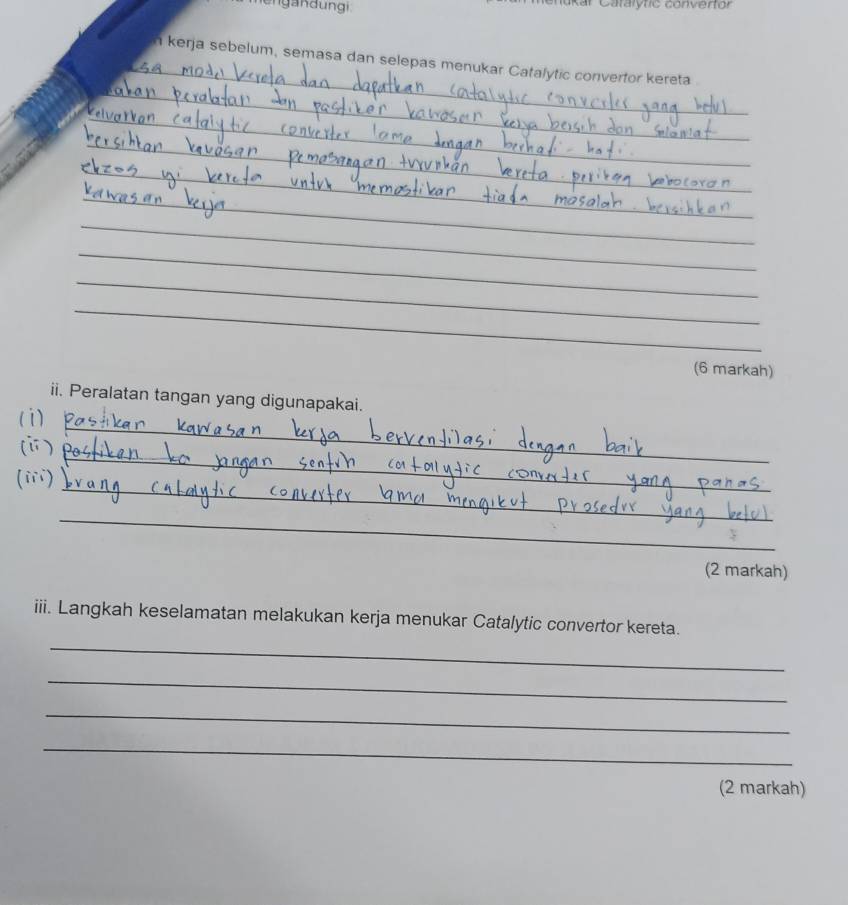 ngandungi
menukar Catalytic convertor
kerja sebelum, semasa dan selepas menukar Catalytic convertor kereta
modil kereta dan dapatkan catalytic converter yang betul
peralatan dan pastikan kawasan kerja bersih dan selamat
keluarkan catalytic converter lama dengan berhati-hati.
bersihkan kawasan pemasangan turunkan kereta. periksa kebocoran
ekzos kereta untuk memastikan tiada masalah. bersihkan
kawasan kerja
(6 markah)
ii. Peralatan tangan yang digunapakai.
(i) Pastikan kawasan kerja berventilasi dengan baik
(ii) pastikan ko jangan sentuh catalytic converter yang panas
(iii) brang catalytic converter lama mengikut prosedur yang betul
(2 markah)
iii. Langkah keselamatan melakukan kerja menukar Catalytic convertor kereta.
(2 markah)